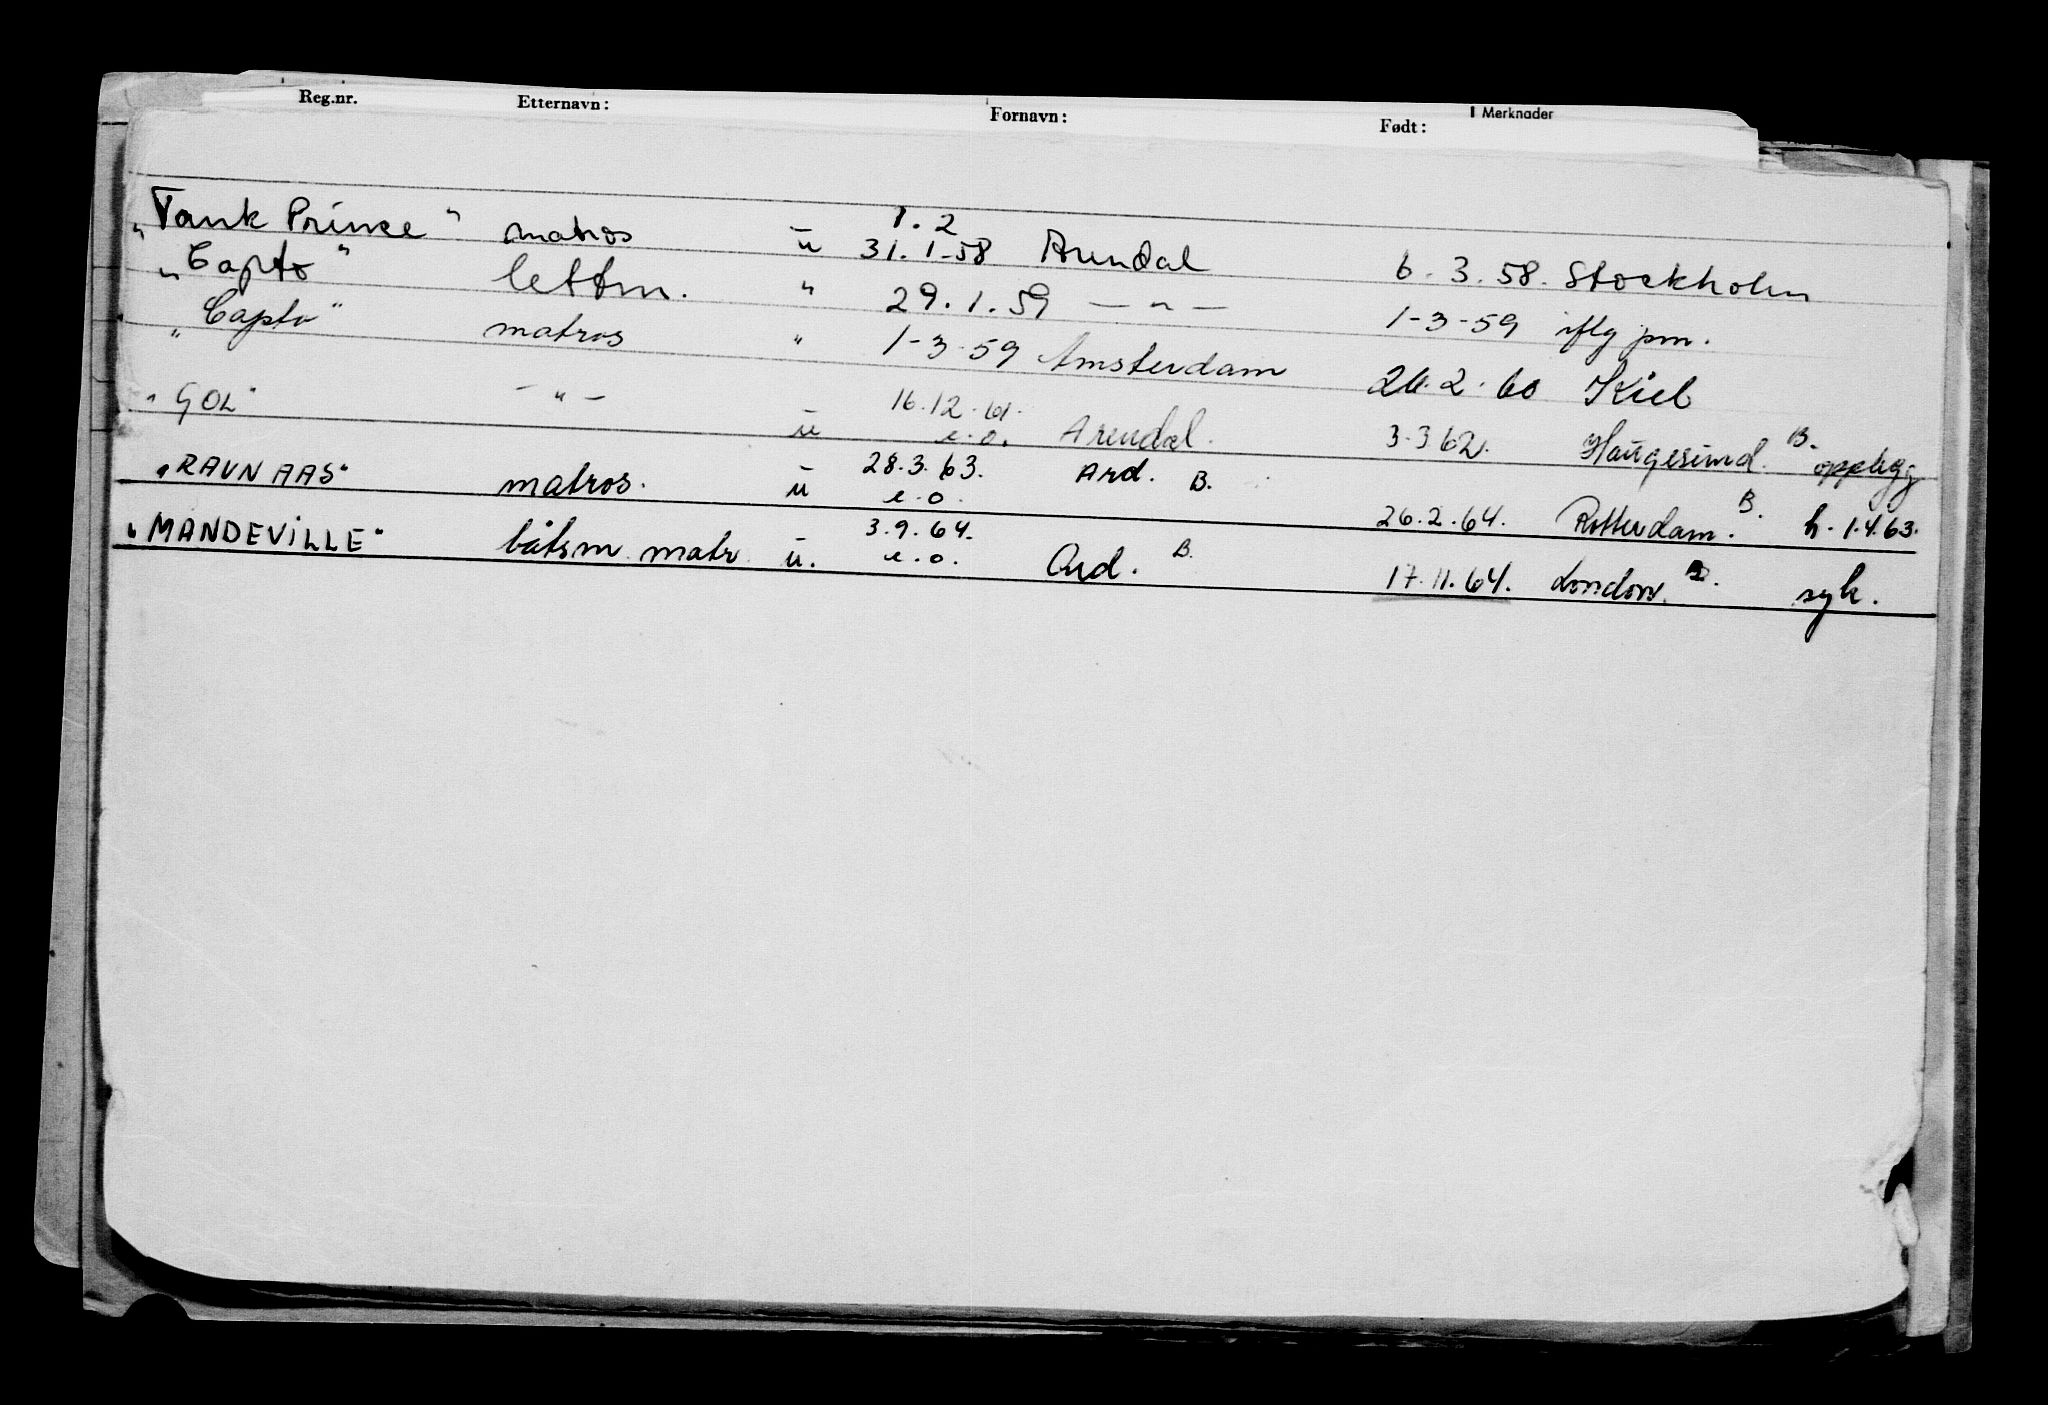 Reg.nr. Etternavn: Fornavn: Født: Merknader
1.2
"Tank Prince" matros u 31.1-58 Arendal 6.3.58. Stockholm
"Capto" lettm. " 29.1.59 — " — 1-3-59 iflg pm.
"Capto" matros " 1-3-59 Amsterdam 26.2.60 Kiel
"GOL" - " - u 16.12.61. e.o. Arendal. 3.3 62. Haugesund. B. opplegg
"RAVNAAS" matros. u 28.3.63. e.o. Ard. B. 26.2.64. Rotterdam. B. h. 1.4.63.
"MANDEVILLE" båtsm. matr u. 3.9.64. e.o. Ard. B. 17.11.64. London. B. syk.